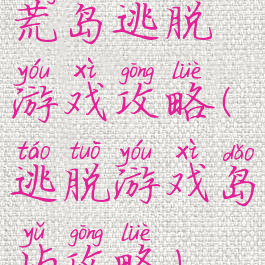 荒岛逃脱
yóu xì gōng lüè
游戏攻略(
táo tuō yóu xì dǎo
逃脱游戏岛
yǔ gōng lüè
屿攻略)